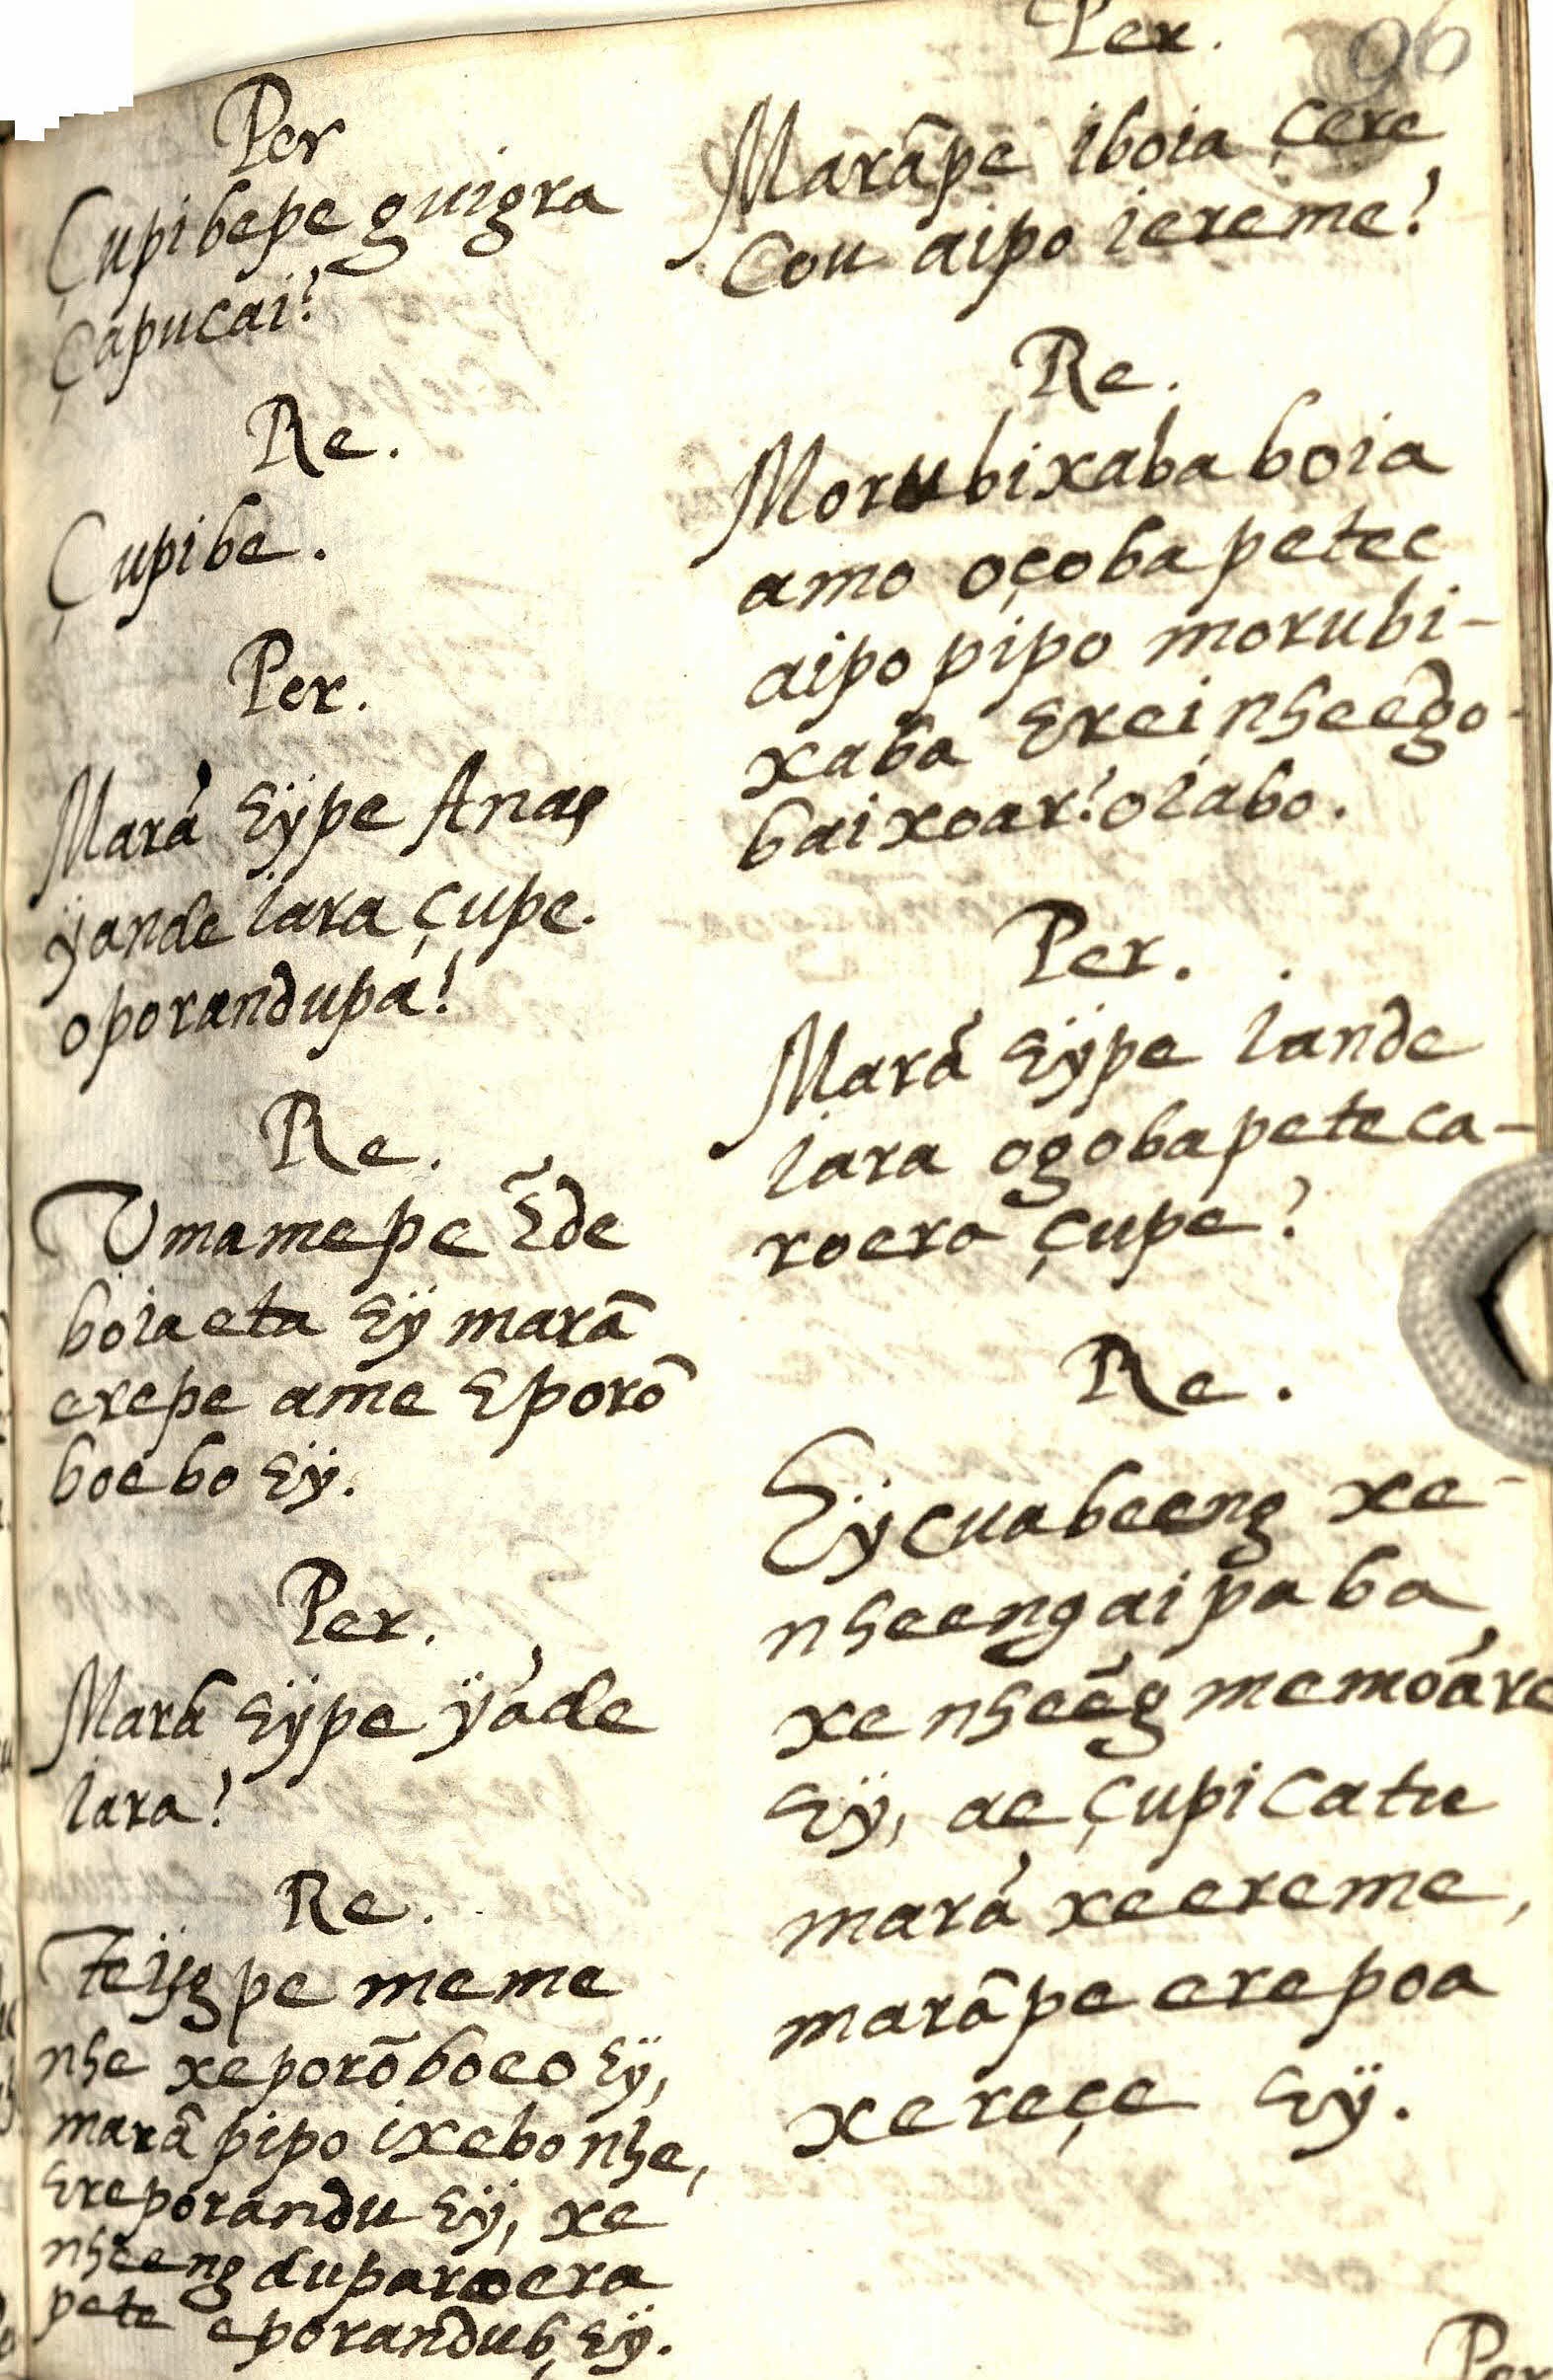 Per
Çupibepe guigra
çapucai?
Re.
Çupibe.
Per.
Marã Eÿpe Anas
ÿande Iara çupe.
oporandupa?
Re.
Vmamepe Ẽde
boiaeta Eÿ marã
erepe ame Eporõ
boebo Eÿ.
Per.
Marã Eÿpe ÿãde
Iara?
Re.
Teijgpe meme
nhe xeporõboeo Eÿ,
marã pipo ixebo nhe,
Ereporandu Eÿ, xe
nheeng duparoera
pete eporandub, Eÿ.
Per. 96
Marãpe iboia çere
cou aipo iereme?
Re.
Morubixaba boia
amo oçobapetec
aipo pipo morubi-
xaba Ereinheẽgo-
baixoar? oiabo.
Per.
Marã Eÿpe Iande
Iara ogobapeteca-
roera çupe?
Re.
Eÿcuabeeng xe-
nheengaipaba
xe nheẽg memoãre
Eÿ, ae çupicatu
marã xeereme,
marãpe erepoa
xereçe Eÿ.
Per